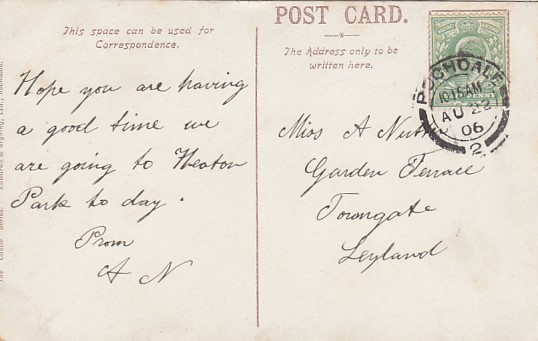 This space can be used for
Correspondence.
POST CARD.
The Address only to be
written here.
ROCHDALE
10.15 AM
AU 22
06
2
Hope you are having
a good time we
are going to Heaton
Park to day.
From
A N
Miss A
Garden Terrace
Towngate
Leyland